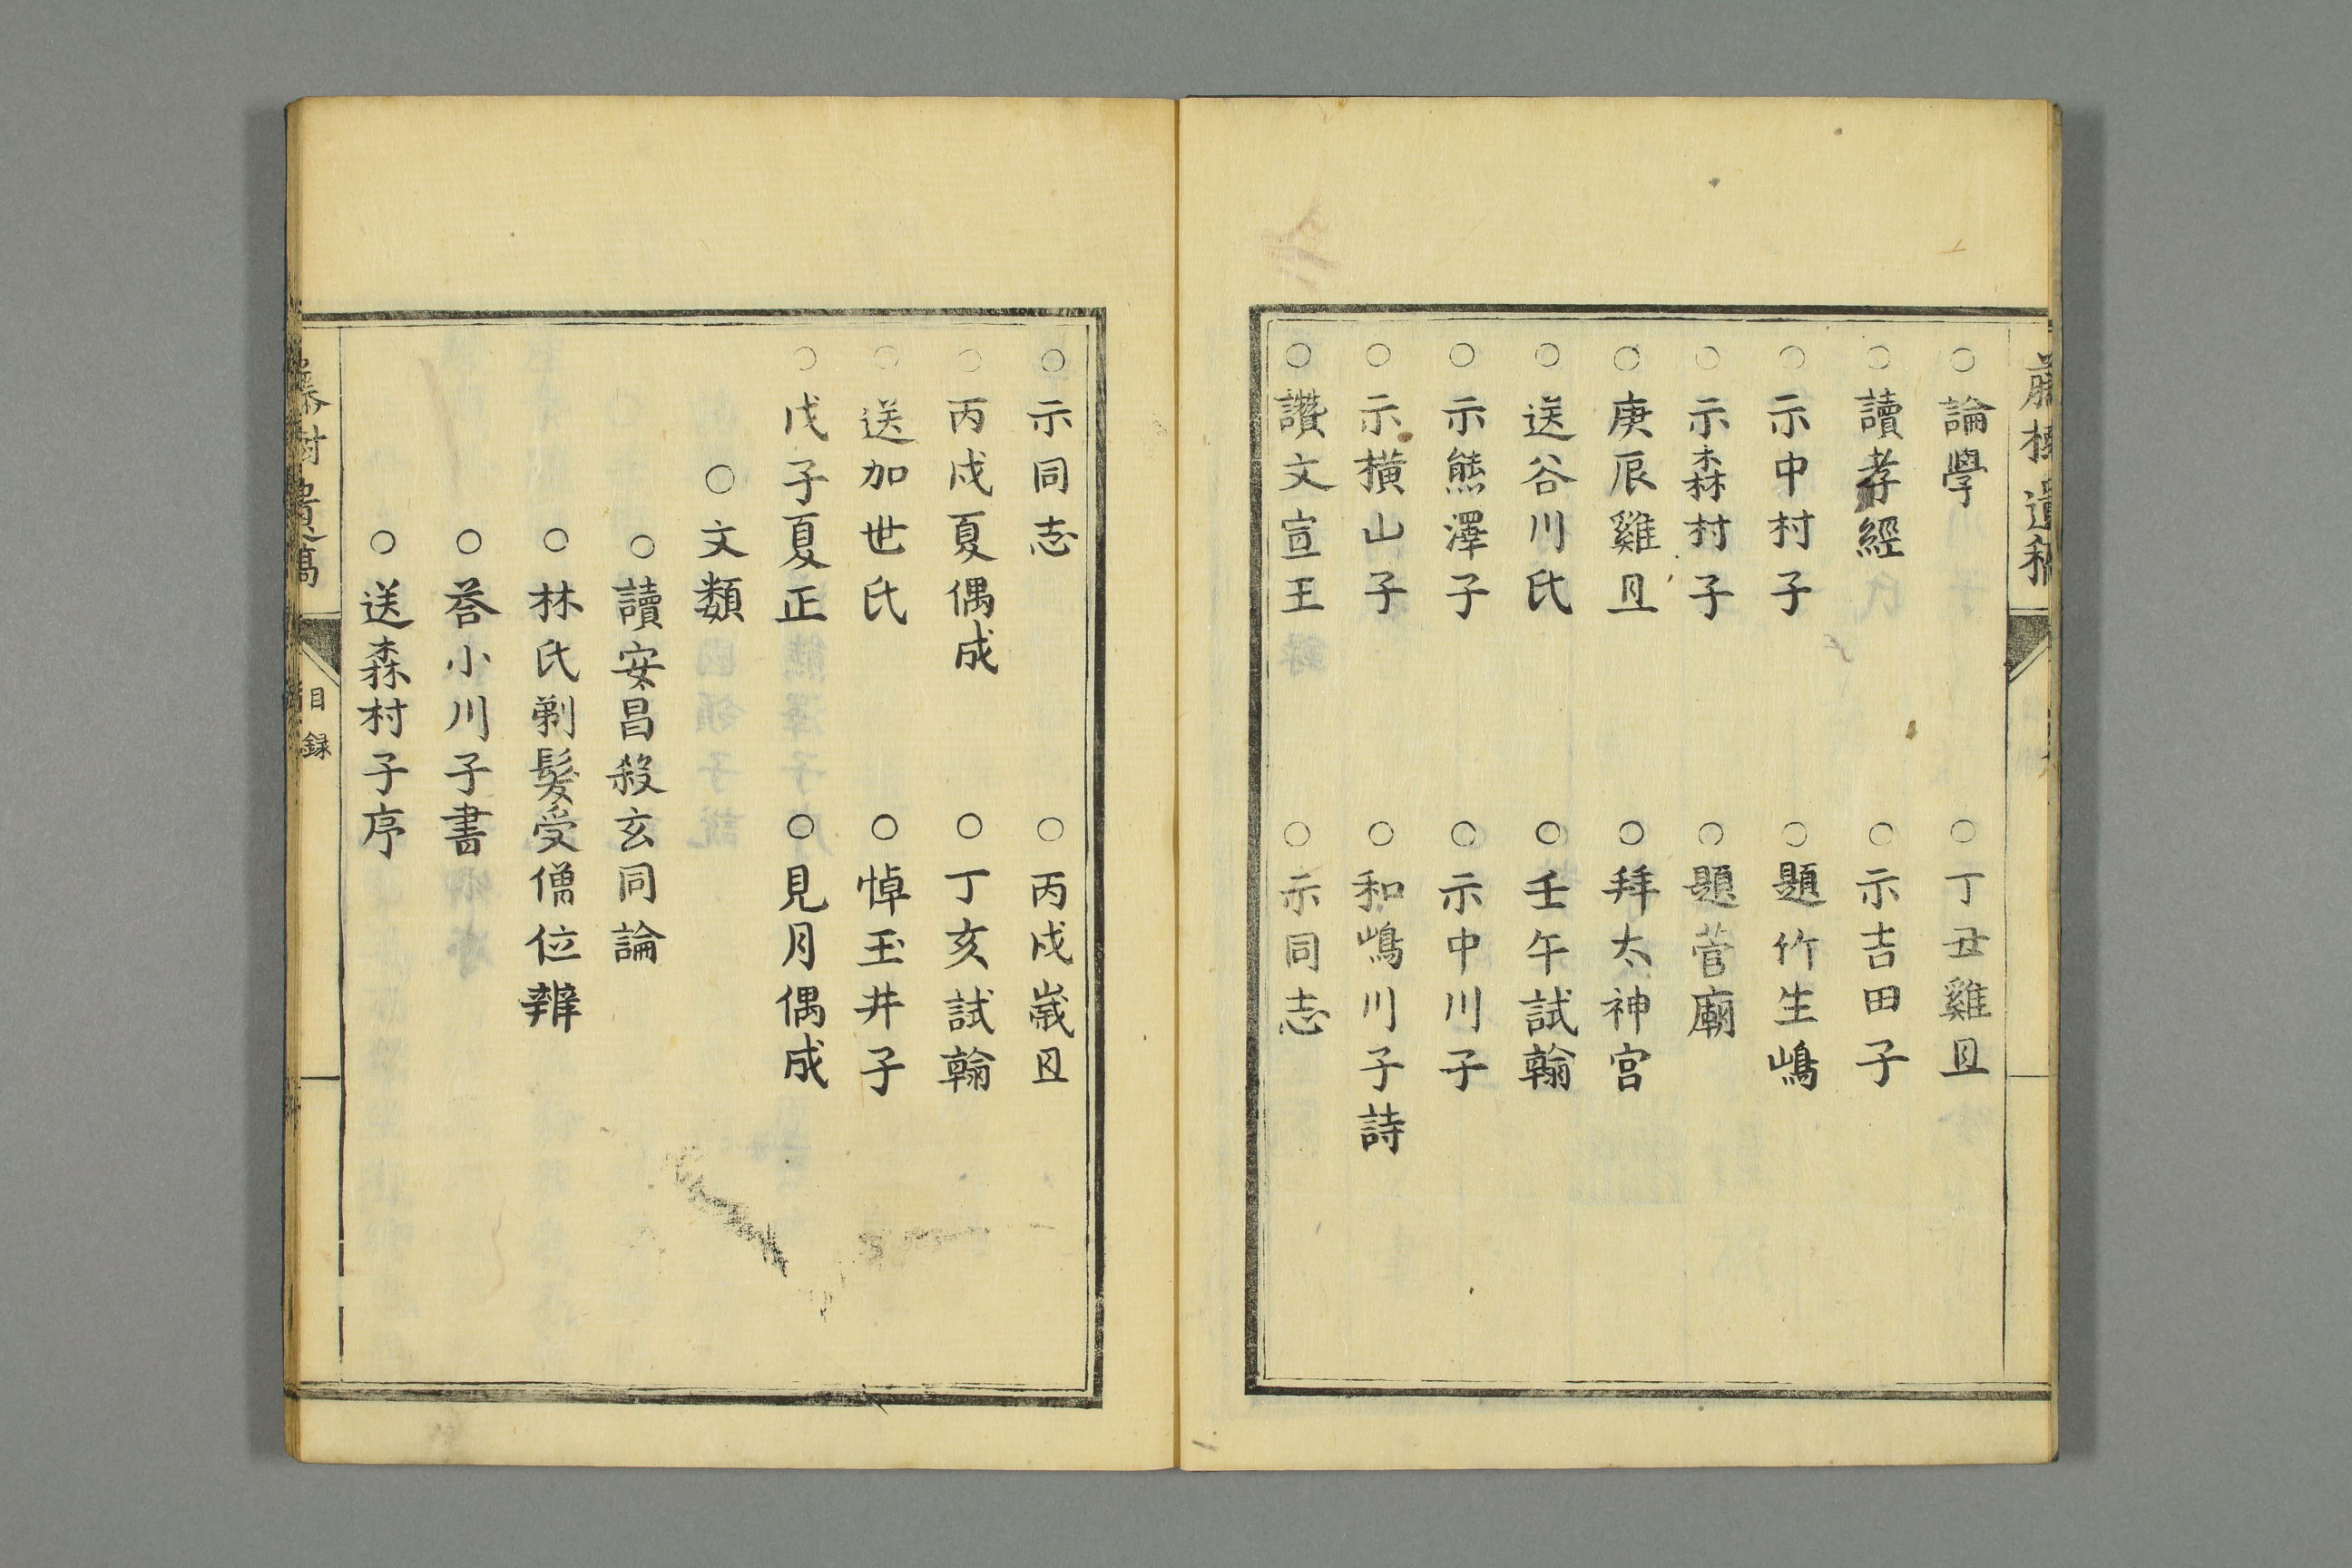 藤樹遺稿
○論學　○丁丑雞旦
○讀孝經　○示吉田子
○示中村子　○題竹生嶋
○示森村子　○題菅廟
○庚辰雞旦　○拜太神宮
○送谷川氏　○壬午試翰
○示熊澤子　○示中川子
○示橫山子　○和嶋川子詩
○讚文宣王　○示同志
○示同志　○丙戌歲旦
○丙戌夏偶成　○丁亥試翰
○送加世氏　○悼玉井子
○戊子夏正　○見月偶成
○文類
○讀安昌殺玄同論
○林氏剃髮受僧位辨
○荅小川子書
○送森村子序
藤樹遺稿
目録